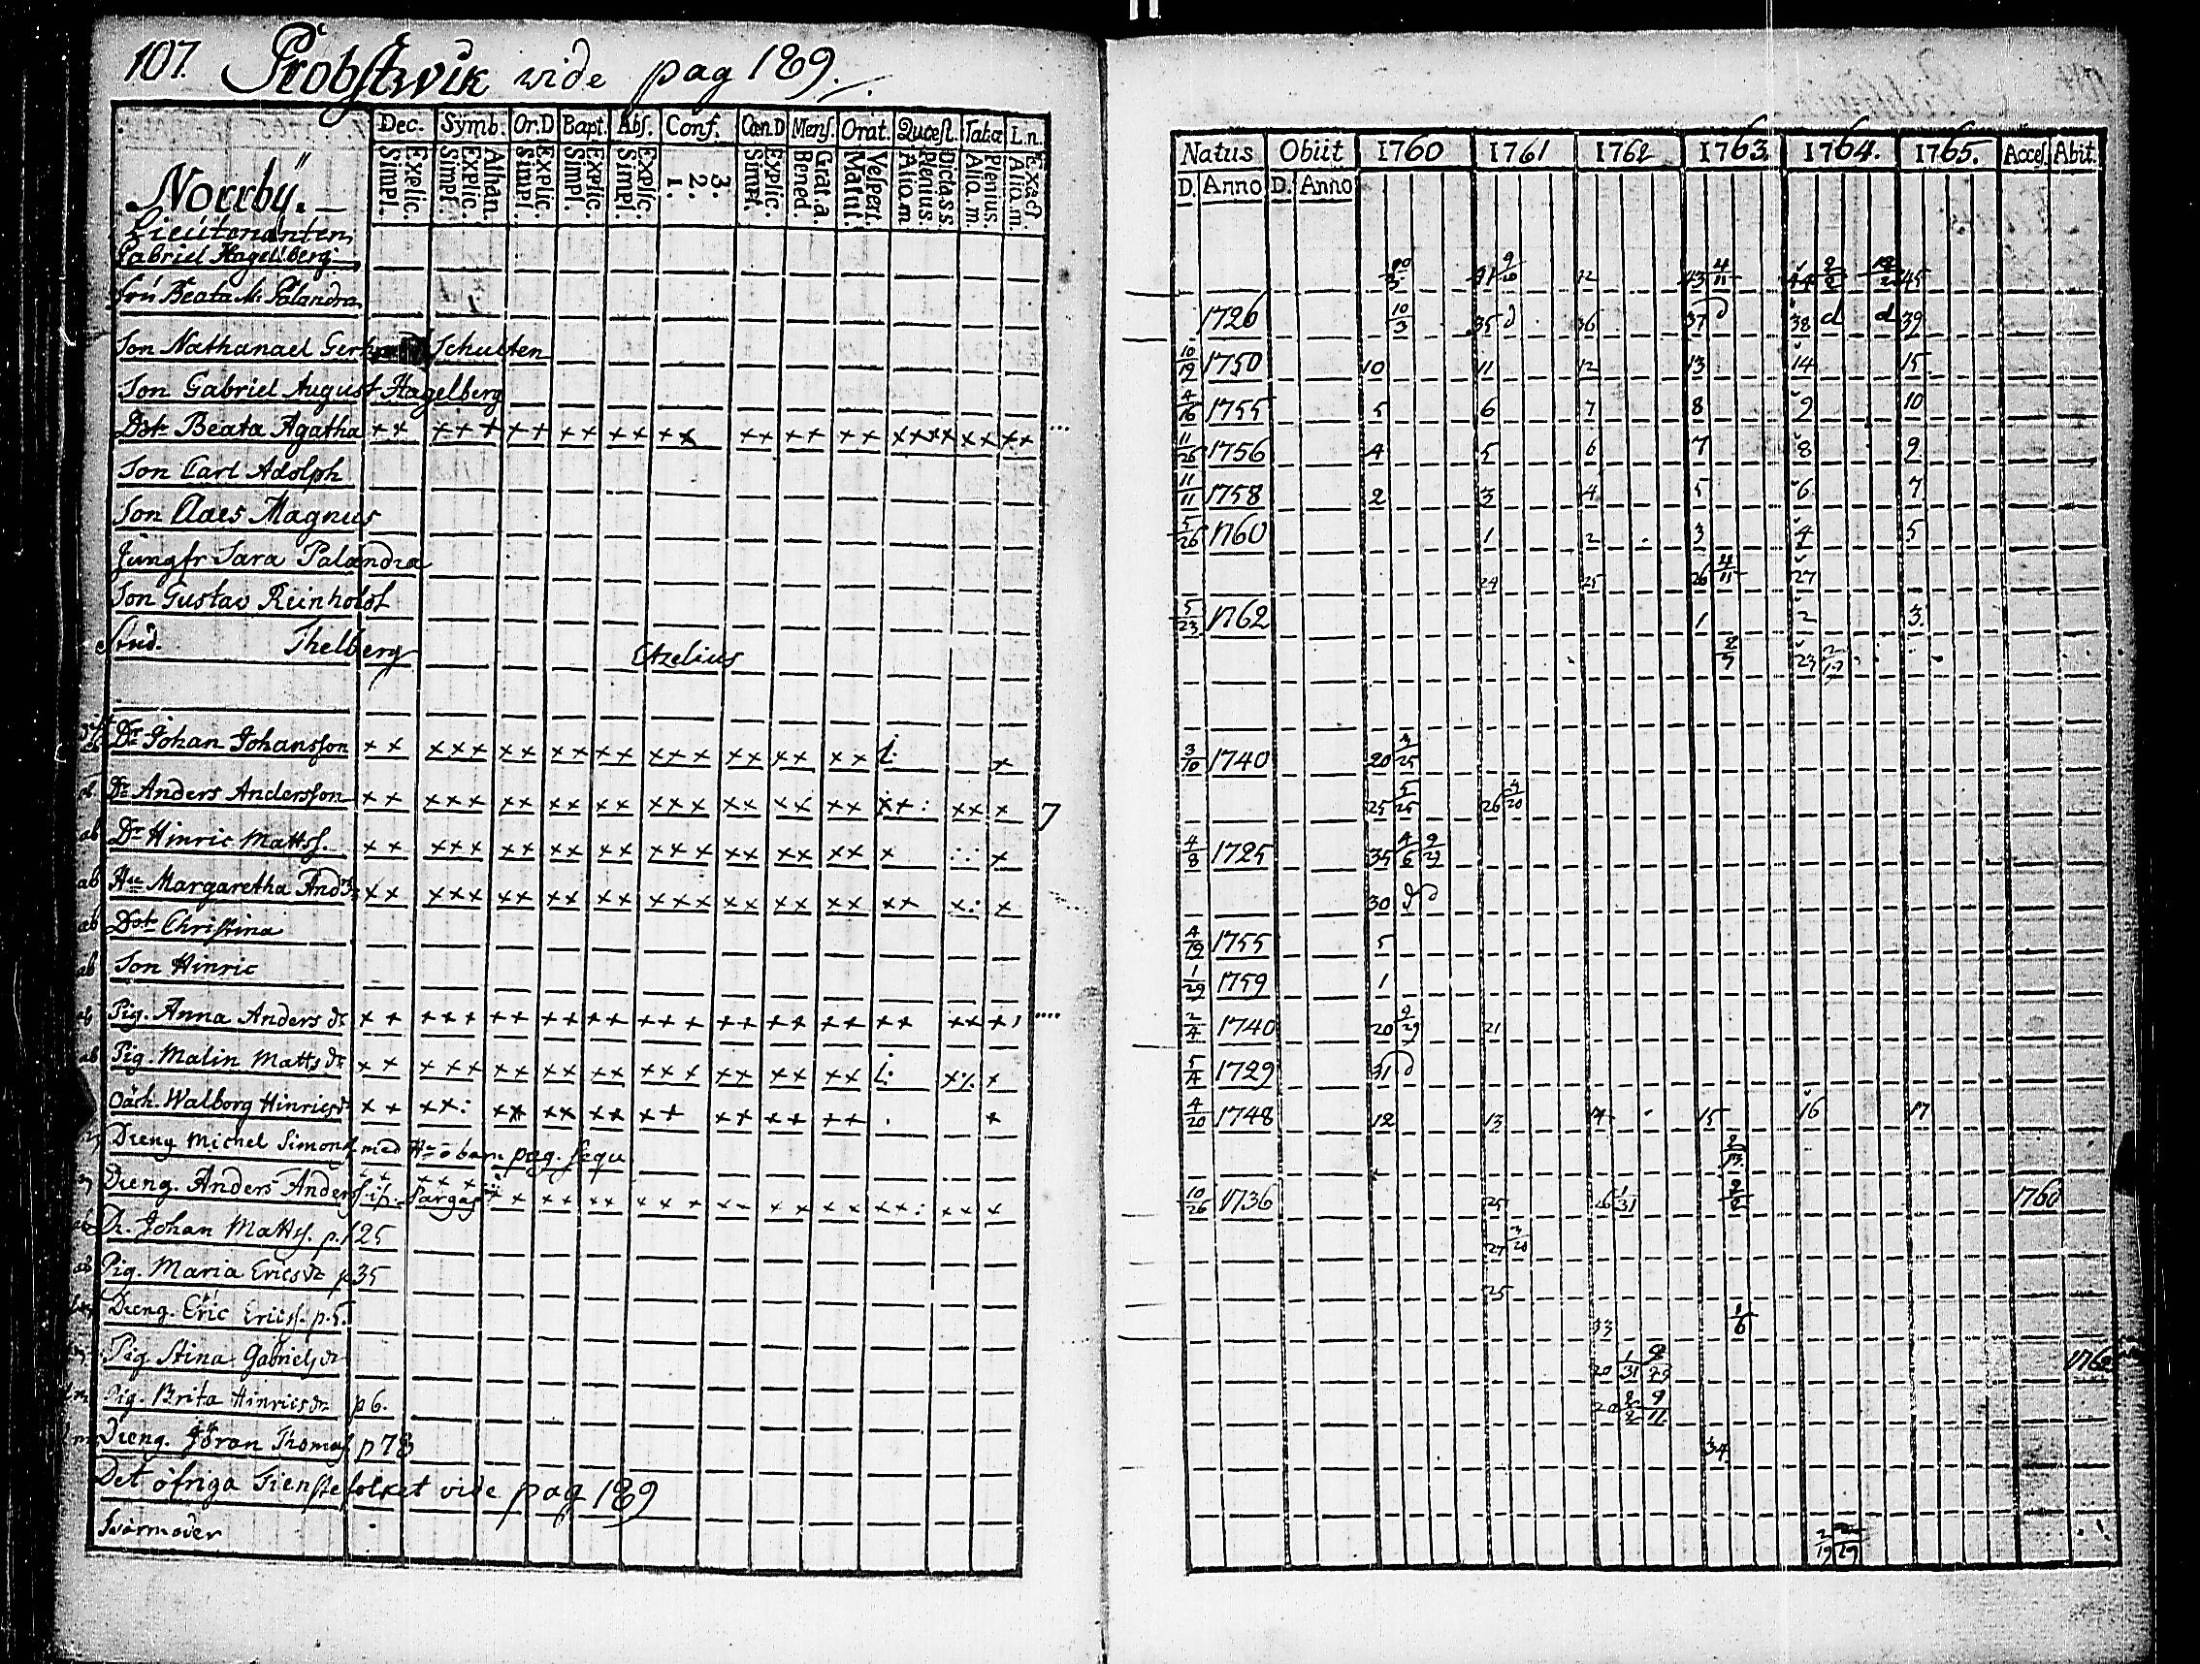 107. Probstwik vide pag 189.
Dec. Symb. Or.D Bapt. Abs. Conf. Cœn.D Mens. Orat. Quæst. Tab.æ L.n.
Simpl. Explic. Simpl. Explic. Athan. Simpl. Explic. Simpl. Explic. Simpl. Explic. 1. 2. 3. Simpl. Explic. Bened. Grat.a. Matut. Vespert. Aliq.m Plenius. Dicta s.s. Aliq.m. Plenius. Aliq.m. Exact
Norrby.
Lieutenanten
Gabriel Hagelberg
fru Beata M. Palandra
Son Nathanael Schulten
Son Gabriel August Hagelberg
Dotr Beata Agatha ++ +++ ++ ++ ++ ++ ++ ++ ++ ++++ ++ ++
Son Carl Adolph
Son Claes Magnus
Jungfr Sara Palandra
Son Gustav Reinholdt
Stud. Thelberg Etzelius
Dr Johan Johansson ++ +++ ++ ++ ++ +++ ++ ++ ++ +
Dr Anders Andersson ++ +++ ++ ++ ++ +++ ++ ++ ++ ++: ++ + 7
ab Dr Hinric Mattss. ++ +++ ++ ++ ++ +++ ++ ++ ++ + +
ab Hu Margaretha ++ +++ ++ ++ ++ +++ ++ ++ ++ ++ +: +
ab Dotr Christina
ab Son Hinric
ab Pig. Anna Anders dr ++ +++ ++ ++ ++ +++ ++ ++ ++ ++ ++ +
ab Pig. Malin Matts dr ++ +++ ++ ++ ++ +++ ++ ++ ++ +
Walborg Hinrics dr ++ ++: ++ ++ ++ ++ ++ ++ ++ +
Dreng Michel Simonss med Hu o barn pag. sequ
Dreng. Anders Anderss. Pargas ++ ++ ++ +++ ++ ++ ++ ++: ++ +
Dr. Johan Mattss. p.125
ab Pig. Maria Erics dr p35
Dreng. Eric Ericss. p.5.
Pig Stina Gabriels dr
Pig. Brita Hinrics dr p6.
Dreng. Jöran Thomass p 78
Det öfriga Tienstefolket vide pag 189
Svärmoder
Natus Obiit 1760 1761 1762 1763. 1764. 1765. Acces. Abit.
D. Anno D. Anno
12 43 4/11 45
1726 10/3 35 d 36 37 d 38 d d 39
10/19 1750 10 11 12 13 14 15
4/16 1755 5 6 7 8 9 10
11/26 1756 4 5 6 7 8 9
11/11 1758 2 3 4 5 6 7
5/26 1760 1 2 3 4 5
24 25 26 4/11 27
5/23 1762 1 2 3.
23
3/10 1740 20 3/25
25 5/25 26 3/20
4/8 1725 35 4/6 9/29
30
4/19 1755 5
1/29 1759 1
2/4 1740 20 9/29 21
5/4 1729 31 d
4/20 1748 12 13 14 15 16 17
2/13
10/26 1736 25 26 1/31 2/2 1760
27 3/20
25
33 1/6
20 1/31 1762
20 2/2 9/11
34
2/19